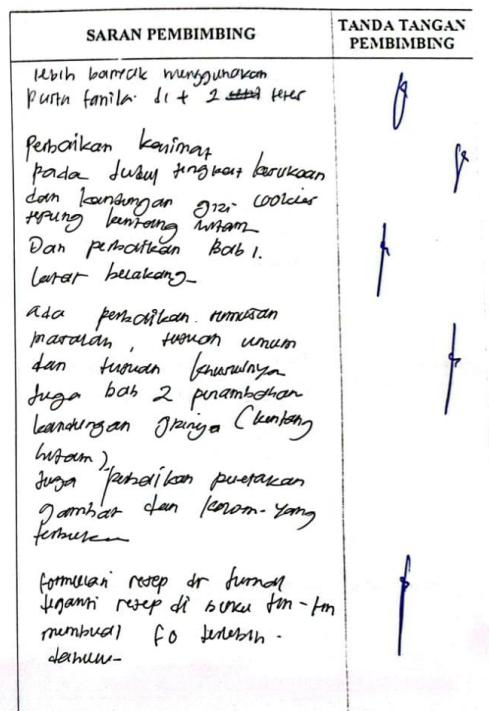 SARAN PEMBIMBING
TANDA TANGAN
PEMBIMBING
lebih banyak menggunakan
pasta vanila di + 2 tetes
Perbaikan kalimat
pada Judul tingkat kesukaan
dan kandungan gizi cookies
tepung kentang hitam
Dan perbaikan Bab 1.
latar belakang
ada perbaikan rumusan
masalah, tujuan umum
dan tujuan khususnya
Juga bab 2 penambahan
kandungan gizinya (kentang
hitam)
Juga perbaikan peletakan
gambar dan kolom-yang
terbuka
formulasi resep dr Jurnal
diganti resep di buku
membuat FO terlebih
dahulu